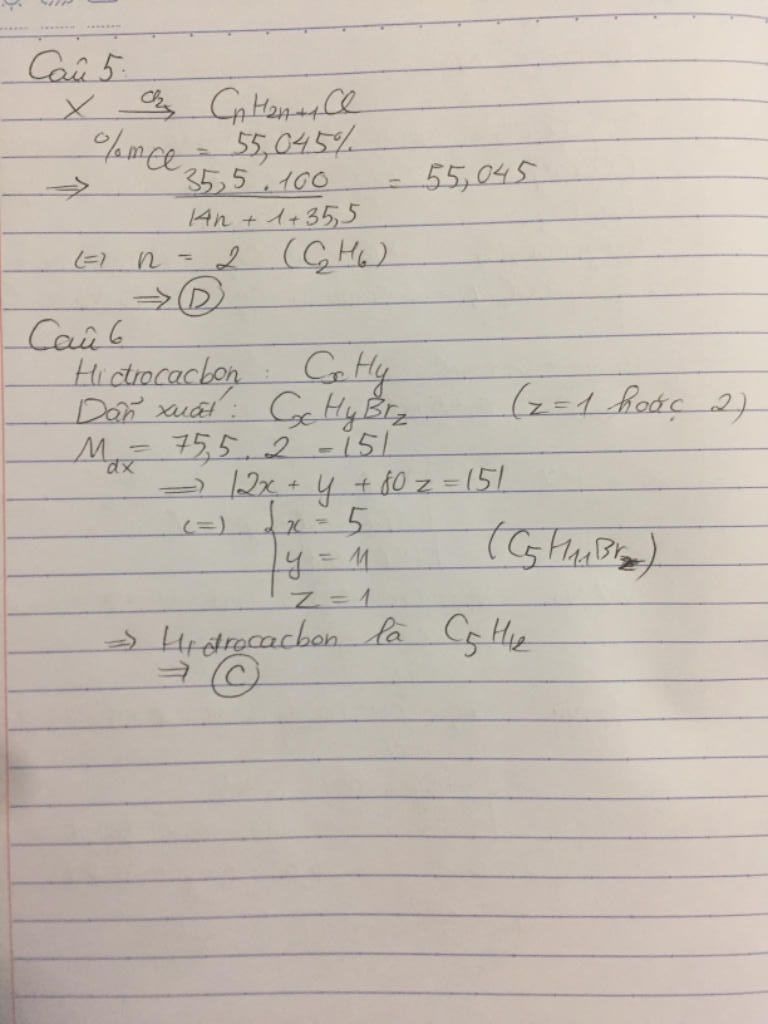 Câu 5:
X Cl₂→ CnH2n+1Cl
%mCl = 55,045%
⇒ 35,5 . 100 / 14n + 1 + 35,5 = 55,045
(=) n = 2 (C₂H₆)
⇒ D
Câu 6
Hiđrocacbon : CxHy
Dẫn xuất : CxHyBrz (z = 1 hoặc 2)
Mdx = 75,5 . 2 = 151
⇒ 12x + y + 80z = 151
(=) { x = 5
y = 11 (C₅H₁₁Br)
z = 1
⇒ Hiđrocacbon là C₅H₁₂
⇒ C